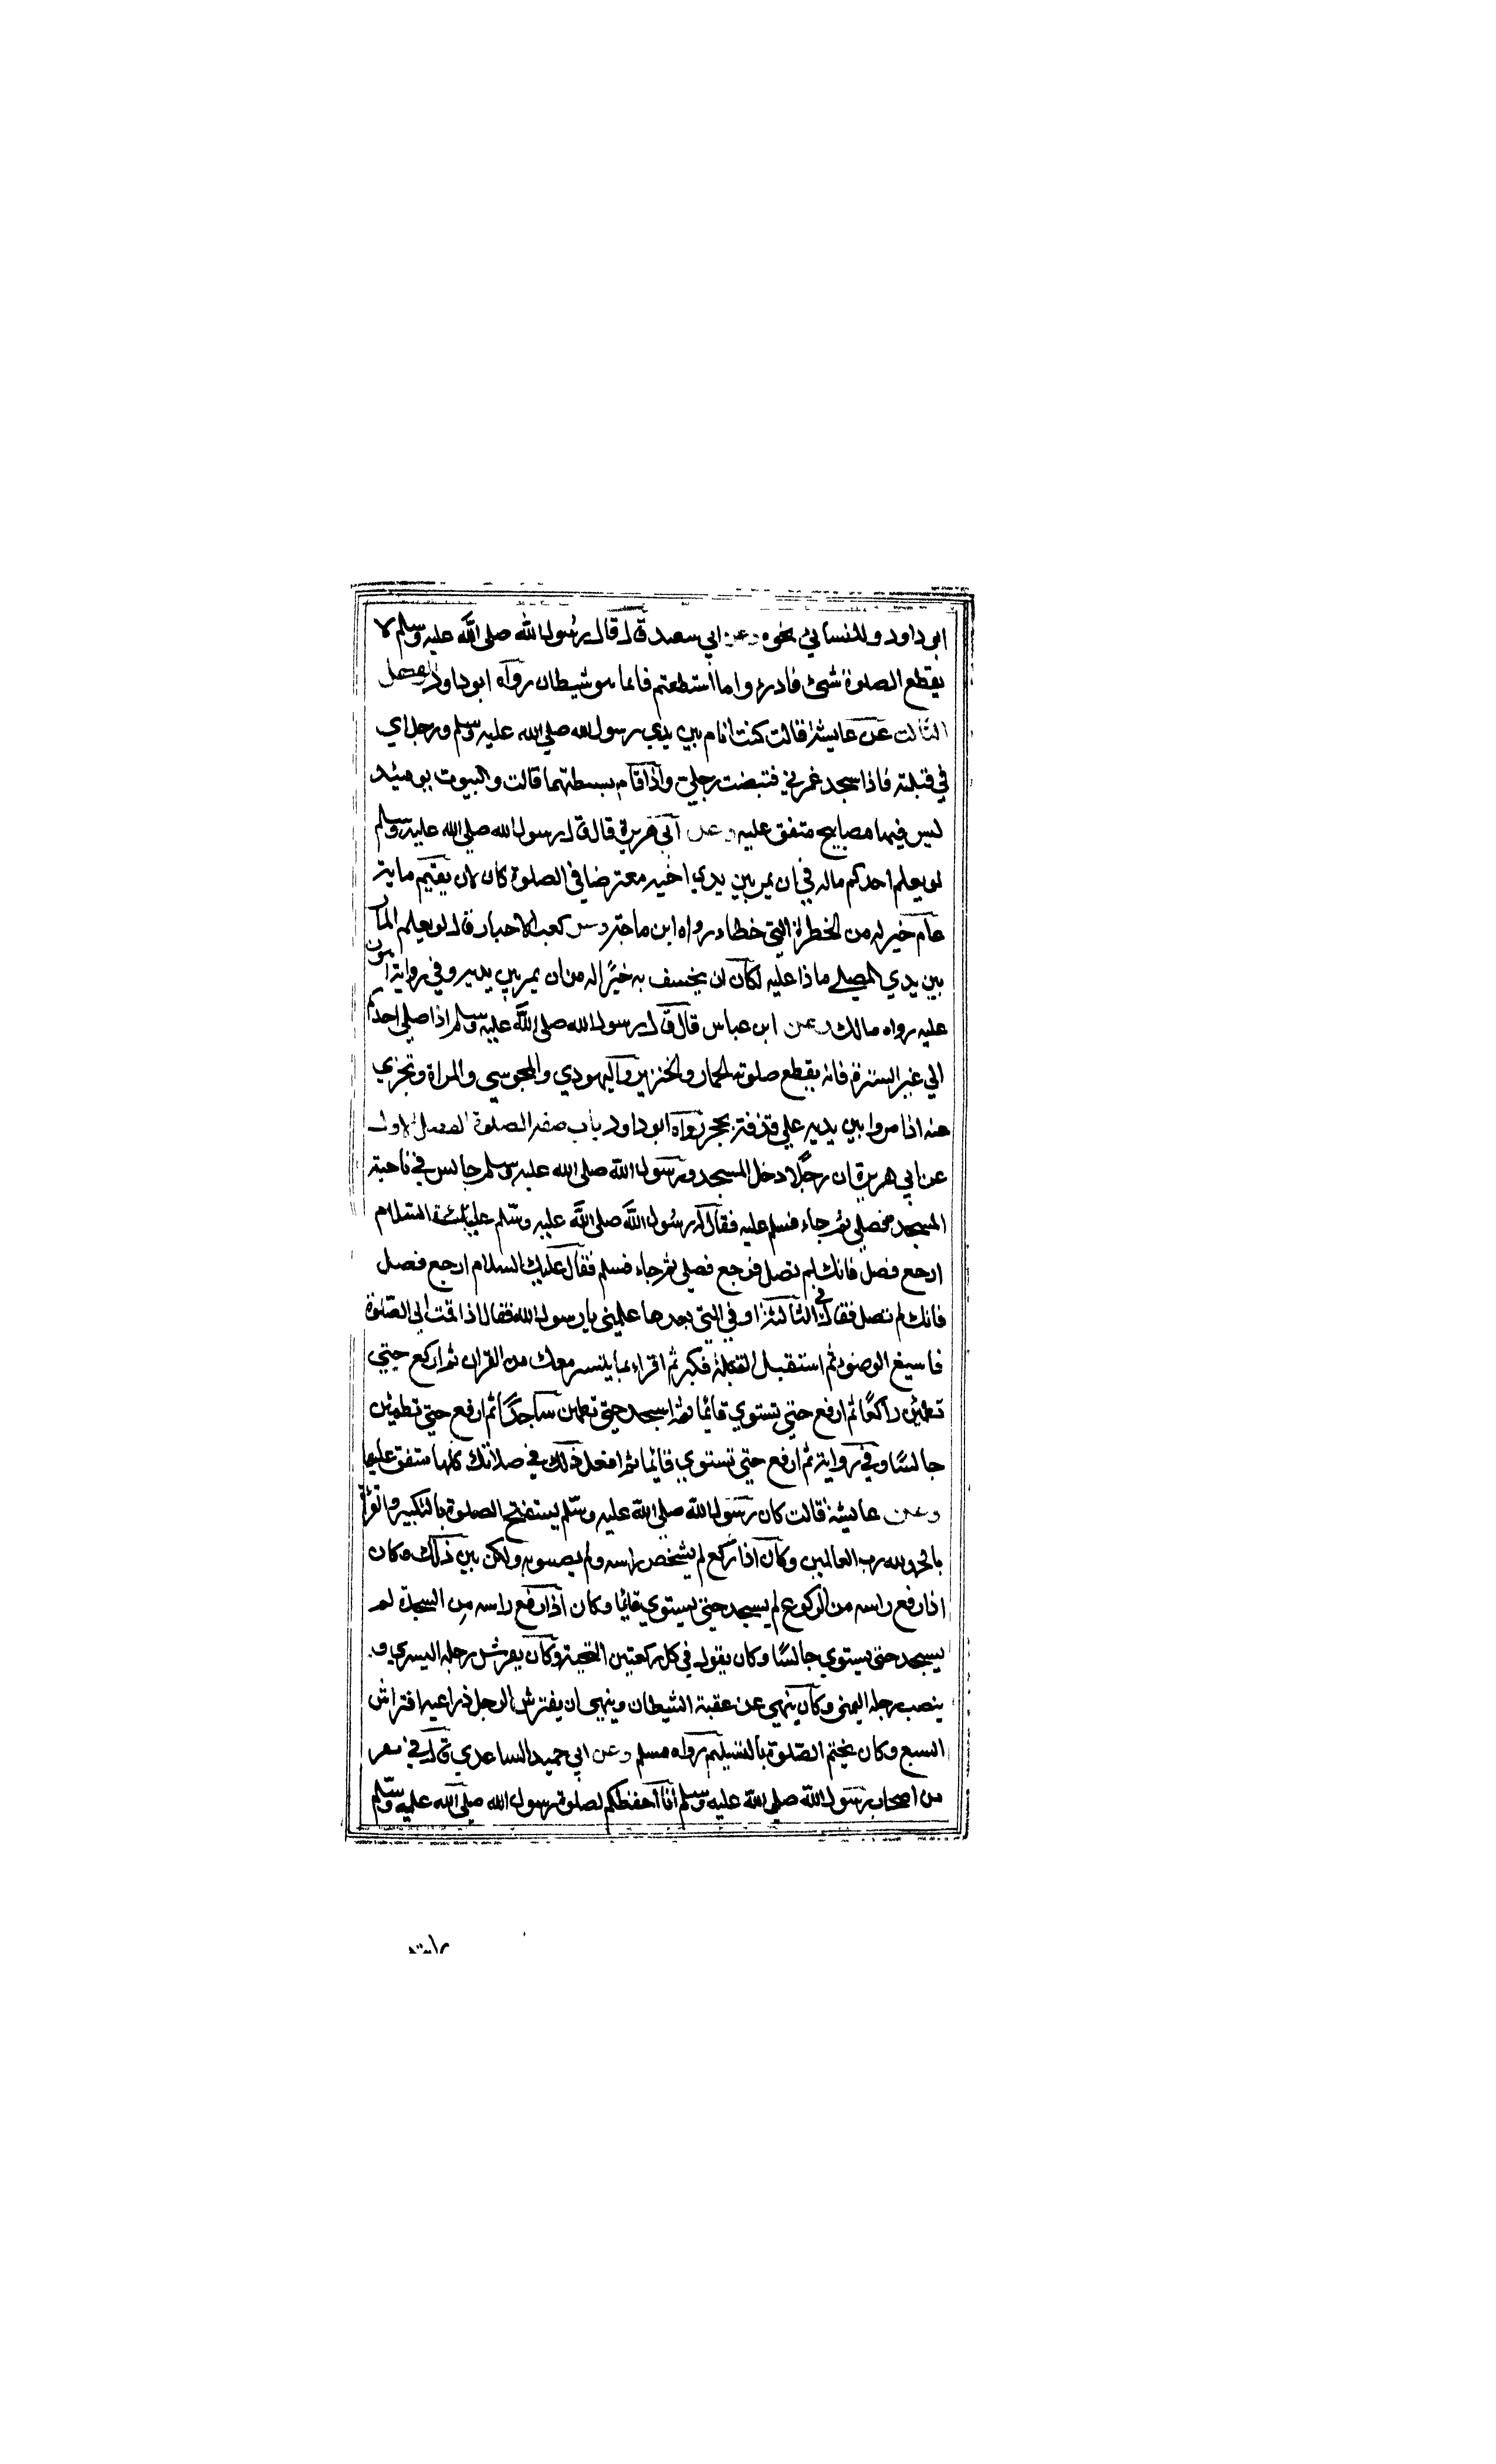 ابو داود وللنسائي نحوه وعن ابي سعيد قال قال رسول الله صلى الله عليه وسلم لا
يقطع الصلوة شئ فادرؤا ما استطعتم فانما هو شيطان رواه ابو داود الفصل
الثالث عن عايشة قالت كنت انام بين يدي رسول الله صلي الله عليه وسلم ورجلاي
في قبلته فاذا سجد غمزني فقبضت رجلي واذا قام بسطتهما قالت والبيوت يومئذ
ليس فيها مصابيح متفق عليه وعن ابي هريرة قال قال رسول الله صلي الله عليه وسلم
لو يعلم احدكم ماله في ان يمر بين يدي اخيه معترضا في الصلوة كان لان يقيم ماية
عام خير له من الخطوة التي خطاء رواه ابن ماجة وعن كعب الاحبار قال لو يعلم المار
بين يدي المصلي ماذا عليه لكان ان يخسف به خيرًا له من ان يمر بين يديه وفي رواية اهون
عليه رواه مالك وعن ابن عباس قال قال رسول الله صلى الله عليه وسلم اذا صلي احدكم
الي غير السترة فانه يقطع صلوته الحمار والخنزير واليهودي والمجوسي والمراة وتجزي
عنه اذا مروا بين يديه علي قذفة بحجر رواه ابو داود باب صفة الصلوة الفصل الاول
عن ابي هريرة ان رجلًا دخل المسجد ورسول الله صلى الله عليه وسلم جالس في ناحية
المسجد فصلي ثم جاء فسلم عليه فقال له رسول الله صلى الله عليه وسلم عليك السلام
ارجع فصل فانك لم تصل فرجع فصلي ثم جاء فسلم فقال عليك السلام ارجع فصل
فانك لم تصل فقال في الثالثة او في التي بعدها علمني يا رسول الله فقال اذا قمت الي الصلوة
فاسبغ الوضوء ثم استقبل القبلة فكبر ثم اقراء بما يتسر معك من القران ثم اركع حتي
تطمئن راكعًا ثم ارفع حتي تستوي قايما ثم اسجد حتي تطمئن ساجدًا ثم ارفع حتي تطمئن
جالسًا وفي رواية ثم ارفع حتي تستوي قايما ثم افعل ذلك في صلاتك كلها متفق عليها
وعن عايشة قالت كان رسول الله صلى الله عليه وسلم يستفتح الصلوة بالتكبير والقرأة
بالحمد لله رب العالمين وكان اذا ركع لم يشخص راسه ولم يصوبه ولكن بين ذلك وكان
اذا رفع راسه من الركوع لم يسجد حتي يستوي قايمًا وكان اذا رفع راسه من السجدة لم
يسجد حتي يستوي جالسًا وكان يقول في كل ركعتين التحية وكان يفرش رجله اليسري و
ينصب رجله اليمني وكان ينهي عن عقبة الشيطان وينهي ان يفترش الرجل ذراعيه افتراش
السبع وكان يختم الصلوة بالتسليم رواه مسلم وعن ابي حميد الساعدي قال في نفر
من اصحاب رسول الله صلى الله عليه وسلم انا احفظكم لصلوة رسول الله صلى الله عليه وسلم
رايته